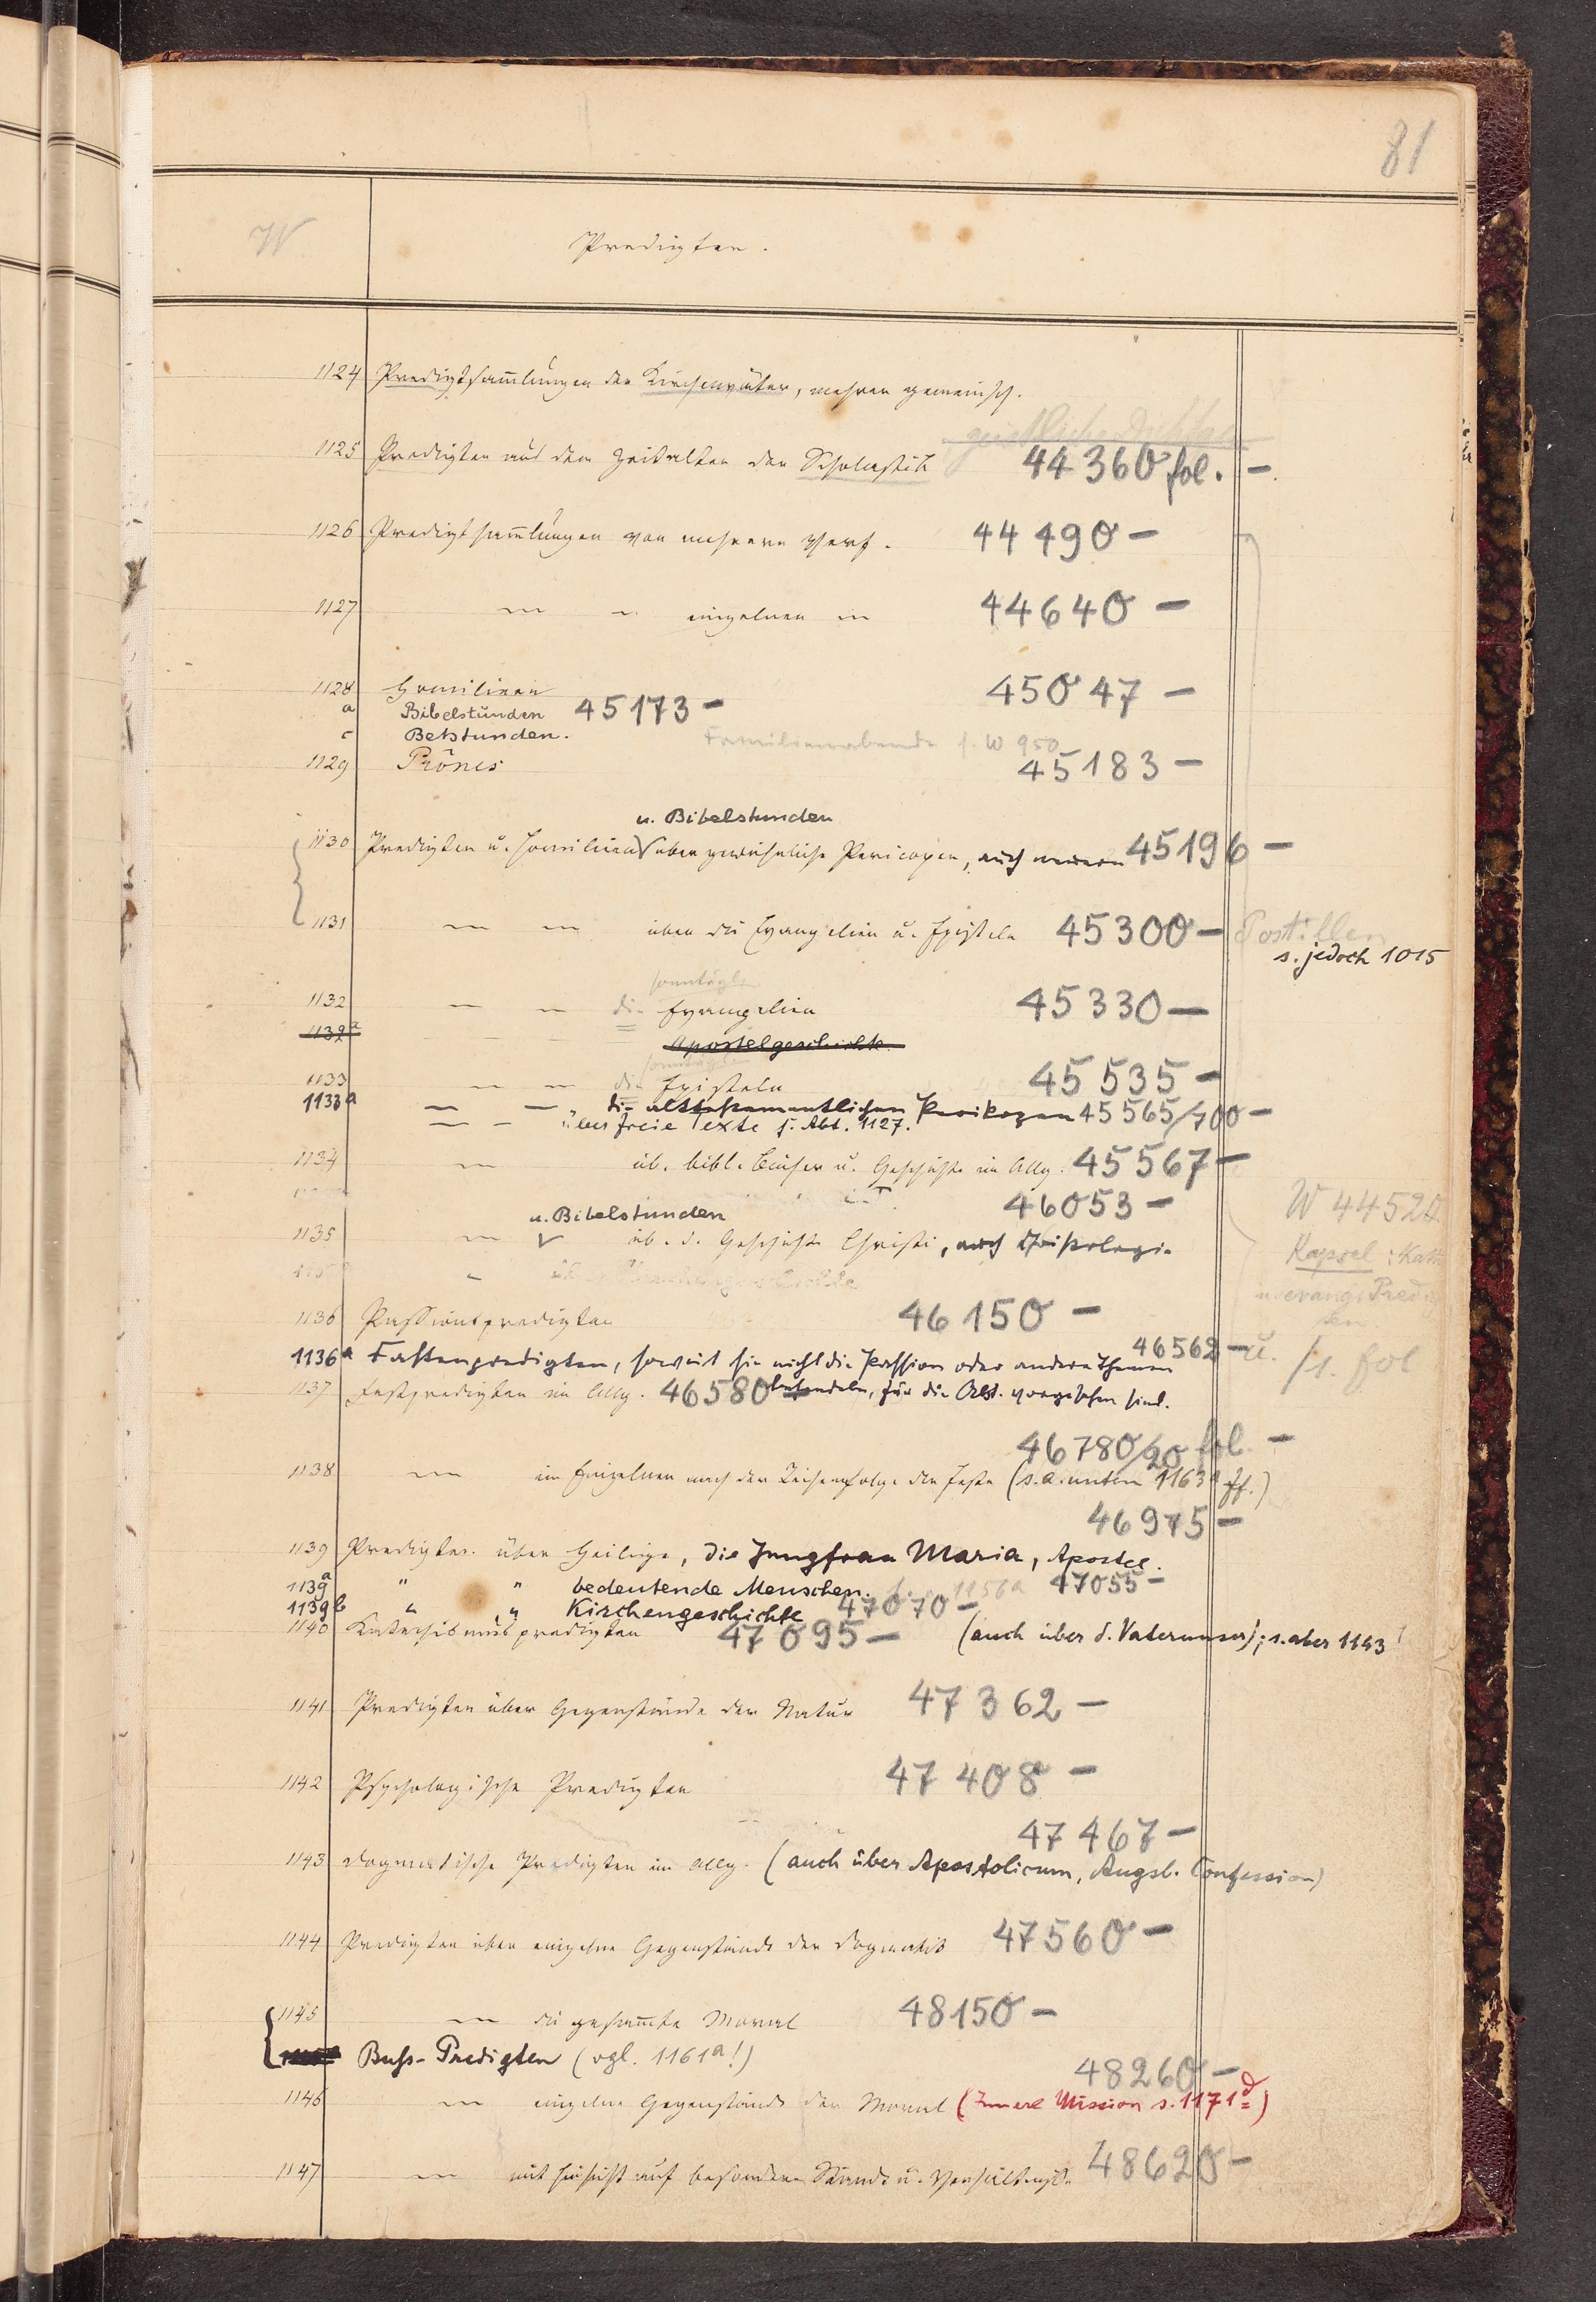 81
W Predigten.
1124 Predigtsam̄lungen der Kirchenväter, mehrer gemeinsch.
geistliche
1125 Predigten aus dem Zeitalter der Scholastik 44360 fol. –
1126 Predigtsam̄lungen von mehrern Verf. 44490 –
1127 — – einzelnen — 44640 –
1128 Homilieen 45047 –
a Bibelstunden 45173 –
c Betstunden. Familienabende s. W 950
1129 Prônes 45183 –
u. Bibelstunden
1130 Predigten u. Homilieen über gewöhnliche Pericopen, auch neuere 45196 –
1131 — — über die Evangelien u. Episteln 45300 – Postillen
s. jedoch 1015
sonntägl.
1132 — — die Evangelien 45330 —
1132a — — Apostelgeschichte
sonntägl.
1133 — — die Episteln 45535 –
1133a — — die alttestamentlichen Perikopen 45565/700 –
— — über freie Texte s. Abt. 1127.
1134 — üb. bibl. Bücher u. Geschichte im Allg. 45567 –
46053 – W 44520
u. Bibelstunden
1135 — üb. d. Geschichte Christi, auch Christologie
Kapsel: Kath
u. evang. Predig
ten
1136 Passionspredigten 46150 –
46562 – u. /1. fol
1136a Fastenpredigten, soweit sie nicht die Passion oder andere Themen
1137 Festpredigten im Allg. 46580 behandeln, für die Abt. vorgesehen sind.
46780/20 fol. –
1138 — im Einzelnen nach der Reihenfolge der Feste (s. a. unten 1163a ff.)
46975 –
1139 Predigten über Heilige, die Jungfrau Maria, Apostel.
1139a " " bedeutende Menschen. 1156a 47055 –
1139b " " Kirchengeschichte 47070 –
1140 Katechismuspredigten 47095 – (auch über d. Vaterunser); s. aber 1143
1141 Predigten über Gegenstände der Natur 47362 –
1142 Psychologische Predigten 47408 –
47467 –
1143 Dogmatische Predigten im Allg. (auch über Apostolicum, Augsb. Confession)
1144 Predigten über einzelne Gegenstände der Dogmatik 47560 –
1145 — die gesam̄te Moral 48150 –
Buß-Predigten (vgl. 1161a!)
48260 –
1146 — einzelne Gegenstände der Moral (Innere Mission s. 1171d)
1147 — mit Hinsicht auf besondere Stände u. Verhältnisse 48620 –